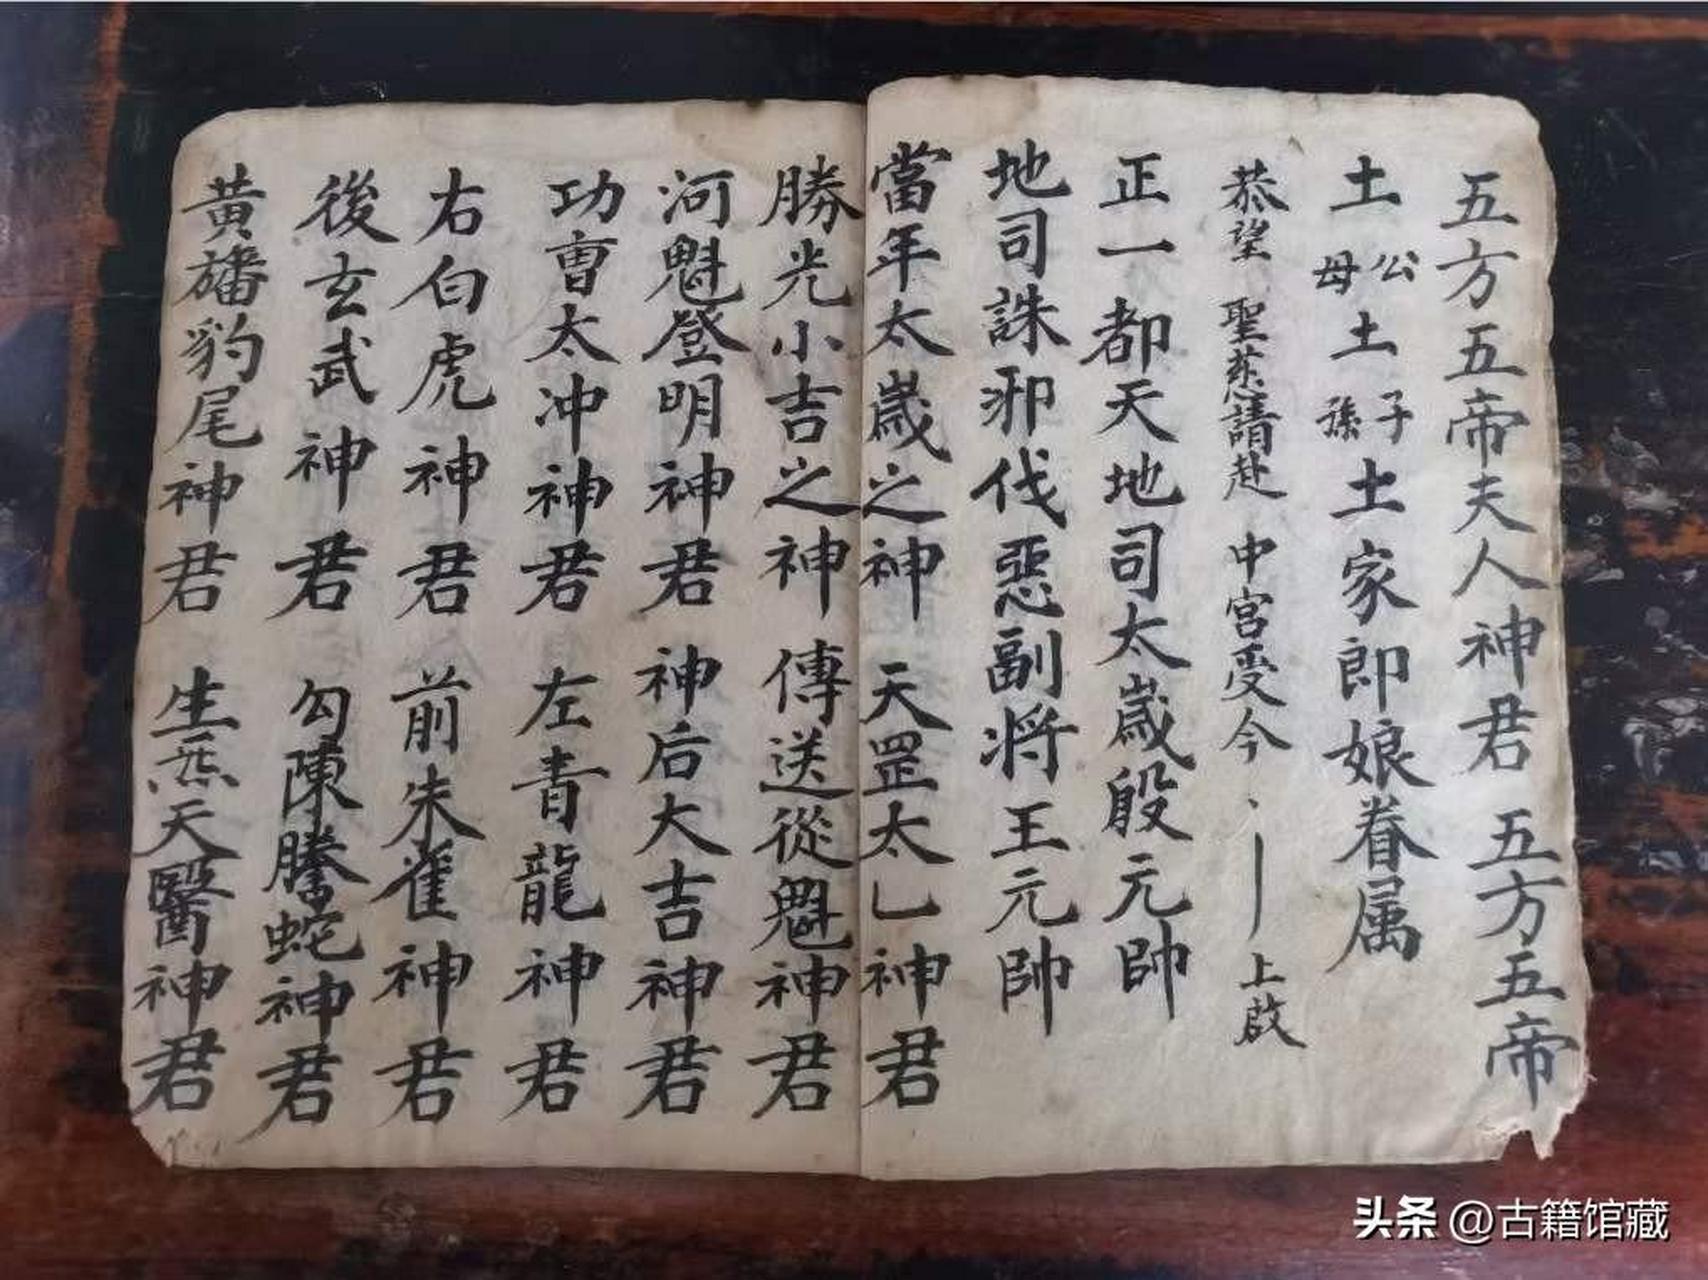 五方五帝夫人神君 五方五帝
土公母土子孫土家郎娘眷属
恭望 聖慈請赴 中宮受今、｜上啟
正一都天地司太歲殷元帥
地司誅邪伐惡副将王元帥
當年太歲之神 天罡太乚神君
勝光小吉之神 傳送從魁神君
河魁登明神君 神后大吉神君
功曹太冲神君 左青龍神君
右白虎神君 前朱雀神君
後玄武神君 勾陳騰蛇神君
黃旛豹尾神君 生炁天醫神君
头条 @古籍馆藏